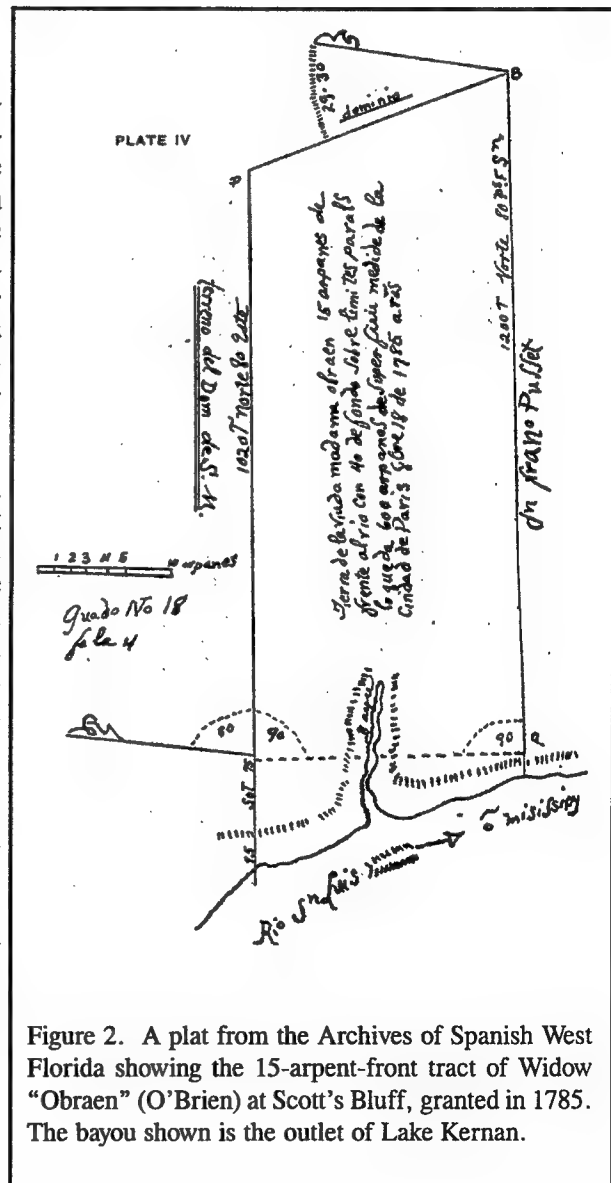 B
29-30
dominio
PLATE IV
B
1200 T Norte 80
Tierra de la Viuda madama obraen 15 arpanes de
frente al rio con 40 de fondo sobre limites
lo queda 600 arpanes de superficie medide de la
Ciudad de Paris 18 de 1785 años
Terreno del Dom de S. M.
1020T norte 80
1 2 3 4 5 10 arpanes
No 18
80
90
90
15
Rio Sn Luis ō misisipy
Figure 2. A plat from the Archives of Spanish West
Florida showing the 15-arpent-front tract of Widow
“Obraen” (O’Brien) at Scott’s Bluff, granted in 1785.
The bayou shown is the outlet of Lake Kernan.